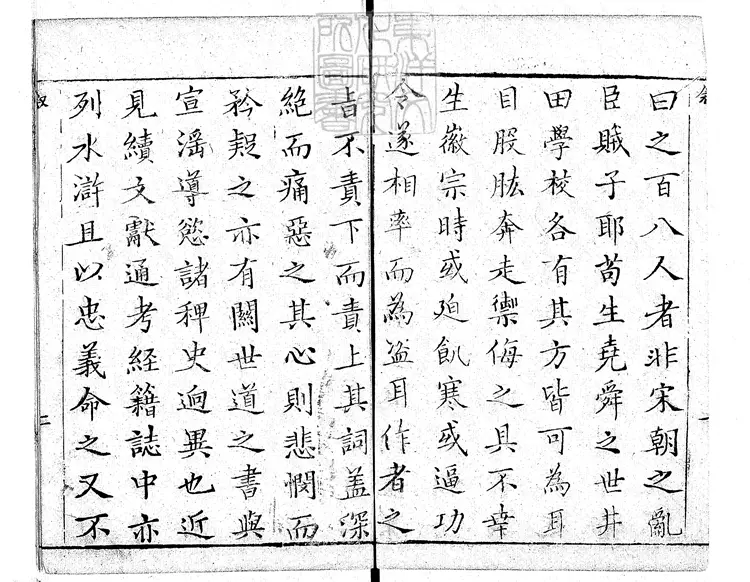 曰之百八人者非宋朝之亂
臣賊子耶苟生堯舜之世井
田學校各有其方皆可為耳
目股肱奔走禦侮之具不幸
生徽宗時或迫飢寒或逼功
令遂相率而為盜耳作者之
旨不責下而責上其詞盖深
絕而痛惡之其心則悲憫而
矜疑之亦有關世道之書與
宣滛導慾諸稗史逈異也近
見續文獻通考經籍誌中亦
列水滸且以忠義命之又不